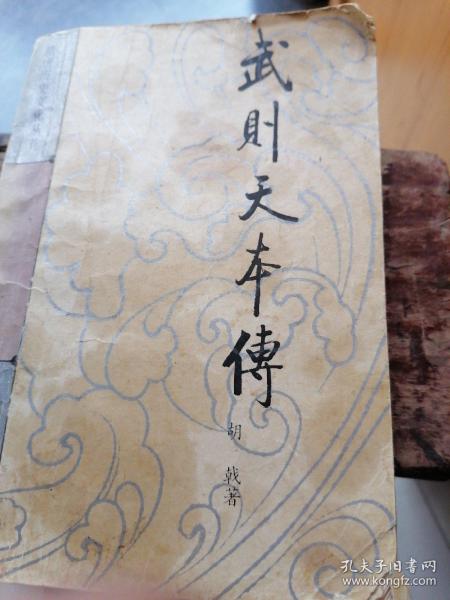 武則天本傳
胡戟著
孔夫子旧书网
www.kongfz.com